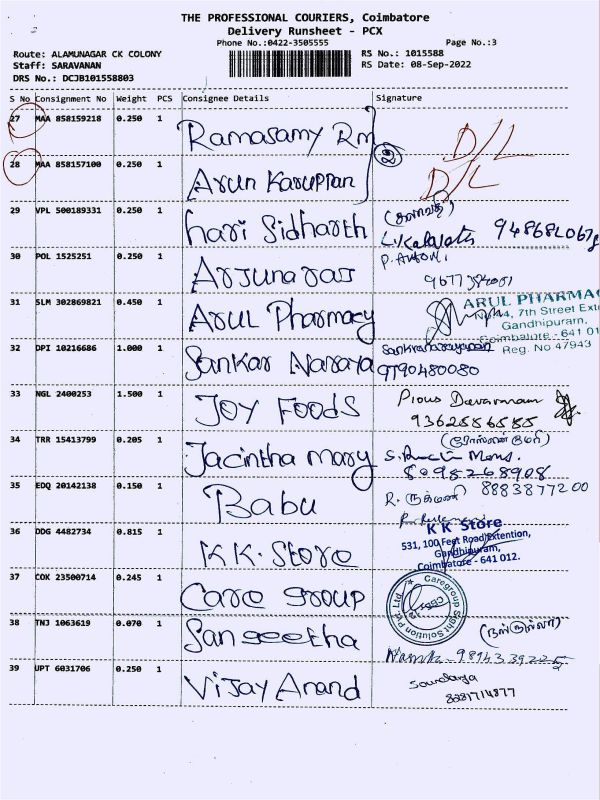 THE PROFESSIONAL COURIERS, Coimbatore
Delivery Runsheet - PCX
Phone No.:0422-3505555 Page No.:3
Route: ALAMUNAGAR CK COLONY RS No.: 1015588
Staff: SARAVANAN RS Date: 08-Sep-2022
DRS No.: DCJB101558803
S No Consignment No Weight PCS Consignee Details Signature
27 MAA 858159218 0.250 1 Ramasamy Rm D/L
28 MAA 858157100 0.250 1 Arun Karuppan D/L
29 VPL 500189331 0.250 1 Hari Sidharth
30 POL 1525251 0.250 1 Arjunaraj
31 SLM 302869821 0.450 1 Arul Pharmacy
ARUL PHARMAC
7th Street Ext
Gandhipuram,
Coimbatore - 641 01
Reg. No 47943
32 DPI 10216686 1.000 1 Sankar Naraya Sankranarayanan
9790480080
33 NGL 2400253 1.500 1 Joy Foods Pious
9362556585
34 TRR 15413799 0.205 1 Jacintha mary
8098268908
35 EDQ 20142138 0.150 1 Babu 8883877200
36 DDG 4482734 0.815 1 K.K. Store
K K Store
531, 100 Feet Road Extention,
Gandhipuram,
Coimbatore - 641 012.
37 COK 23500714 0.245 1 Care group
Caregroup Sight Solution Pvt. Ltd
38 TNJ 1063619 0.070 1 Sangeetha
39 UPT 6031706 0.250 1 Vijay Anand Soundarya
8281714877